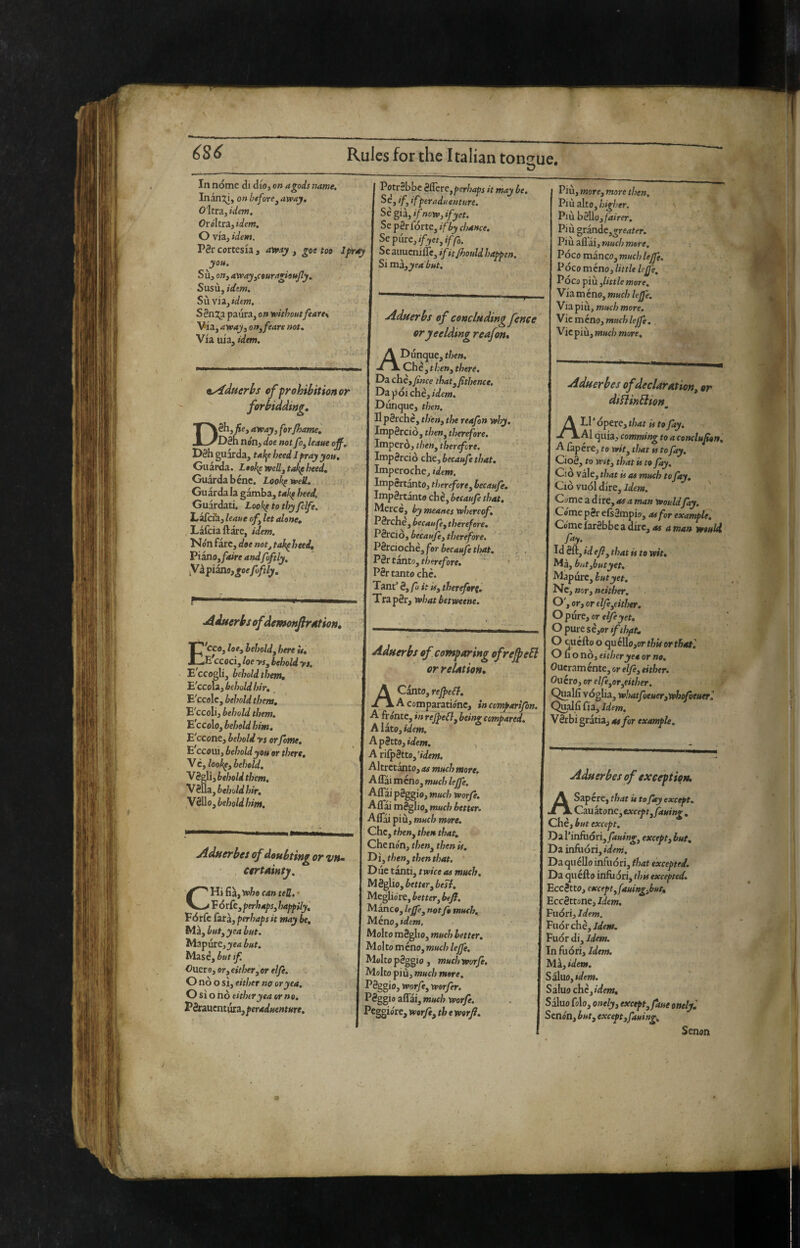 686
Rules for the Italian tongue.
In nóme di dío, on a gods name.
Inánzi, on before, away.
Oltra, idem.
Oróltra, idem.
O vía, idem.
Pêr cortesía, away, goe too I pray
you.
Sù, on, away, couragiously.
Susù, idem.
Sù vìa, idem.
Sênza paúra, on without feare.
Vía, away, on, feare not.
Vía uía, idem.
Aduerbs of prohibition or
forbidding.
DEh, fie, away, for shame.
Dêh nón, doe not so, leaue off.
Dêh guárda, take heed I pray you.
Guárda. Looke well, take heed.
Guárda béne. Looke well.
Guárda la gámba, take heed.
Guárdati. Looke to thy selfe.
Láscia, leaue of, let alone.
Láscia stáre, idem.
Nón fáre, doe not, take heed.
Piáno, faire and softly.
Và piáno, goe softly.
Aduerbs of demonstration.
E'cco, loe, behold, here is.
E'ccoci, loe vs, behold vs.
E'ccogli, behold them.
E'ccola, behold hir.
E'ccole, behold them.
E'ccoli, behold them.
E'ccolo, behold him.
E'ccone, behold vs or some.
E'ccoui, behold you or there.
Ve, looke, behold.
Vêgli, behold them.
Vêlla, behold hir.
Vêllo, behold him.
Aduerbes of doubting or vn-
certainty.
CHi sà, who can tell.
Fórse, perhaps, happily.
Fórse sarà, perhaps it may be.
Mà, but, yea but.
Mapúre, yea but.
Masé, but if.
Ouero, or, either, or else.
O nò o sì, either no or yea.
O sì o nò either yea or no.
Pêrauentúra, peraduenture.
Potrêbbe êssere, perhaps it may be.
Sè, if, if peraduenture.
Sè già, if now, if yet.
Se pêr fórte, if by chance.
Se púre, if yet, if so.
Se auuenisse, if it should happen.
Sì mà, yea but.
Aduerbs of concluding sence
or yeelding reason.
ADúnque, then.
Chè, then, there.
Da chè, since that, sithence.
Da pói chè, idem.
Dúnque, then.
Il pêrchè, then, the reason why.
Impêrciò, then, therefore.
Imperò, then, therefore.
Impêrciò chè, because that.
Imperoche, idem.
Impêrtánto, therefore, because.
Impêrtánto chè, because that.
Mercè, by meanes whereof.
Pêrchè, because, therefore.
Pêrciò, because, therefore.
Pêrciochè, for because that.
Pêr tánto, therefore.
Pêr tanto chè.
Tant' ê, so it is, therefore.
Tra pêr, what betweene.
Aduerbs of comparing of respect
or relation.
A Cánto, respect.
A comparatióne, in comparison.
A frónte, in respect, being compared.
A láto, idem.
A pêtto, idem.
A rispêtto, idem.
Altretánto, as much more.
Assái méno, much lesse.
Assái pêggio, much worse.
Assái mêglio, much better.
Assái più, much more.
Che, then, then that.
Che nón, then, then is.
Di, then, then that.
Dúe tánti, twice as much.
Mêglio, better, best.
Megliòre, better, best.
Mánco, lesse, not so much.
Méno, idem.
Molto mêglio, much better.
Molto méno, much lesse.
Molto pêggio, much worse.
Molto più, much more.
Pêggio, worse, worser.
Pêggio assái, much worse.
Peggióre, worse, the worst.
Più, more, more then.
Più alto, higher.
Più bêllo, fairer.
Più gránde, greater.
Più assái, much more.
Póco mánco, much lesse.
Póco méno, little lesse.
Póco più, little more.
Via méno, much lesse.
Via più, much more.
Vie méno, much lesse.
Vie più, much more.
Aduerbes of declaration, or
distinction.
AL l' ópere, that is to say.
Al quia, comming to a conclusion.
A sapére, to wit, that is to say.
Cioê, to wit, that is to say.
Ciò vále, that is as much to say.
Ciò vuól dire, Idem.
Come a dire, as a man would say.
Cóme pêr essêmpio, as for example.
Cóme sarêbbe a dire, as a man would
say.
Id êst, id est, that is to wit.
Mà, but, but yet.
Mapúre, but yet.
Ne, nor, neither.
O', or, or else, either.
O púre, or else yet.
O pure sè, or if that.
O quésto o quéllo, or this or that.
O sì o nò, either yea or no.
Oueraménte, or else, either.
Ouéro, or else, or, either.
Qualsi vóglia, whatsoeuer, whosoeuer.
Qualsi sia, Idem.
Vêrbi grátia, as for example.
Aduerbes of exception.
ASapére, that is to say except.
Cauátone, except, sauing.
Chè, but except.
Dal'infuóri, sauing, except, but.
Da infuóri, idem.
Da quéllo infuóri, that excepted.
Da quésto infuóri, this excepted.
Eccêtto, except, sauing, but.
Eccêttone, Idem.
Fuóri, Idem.
Fuór chè, Idem.
Fuór di, Idem.
In fuóri, Idem.
Mà, idem.
Sáluo, idem.
Saluo chè, idem.
Sáluo solo, onely, except, saue onely.
Senón, but, except, sauing.
Senon